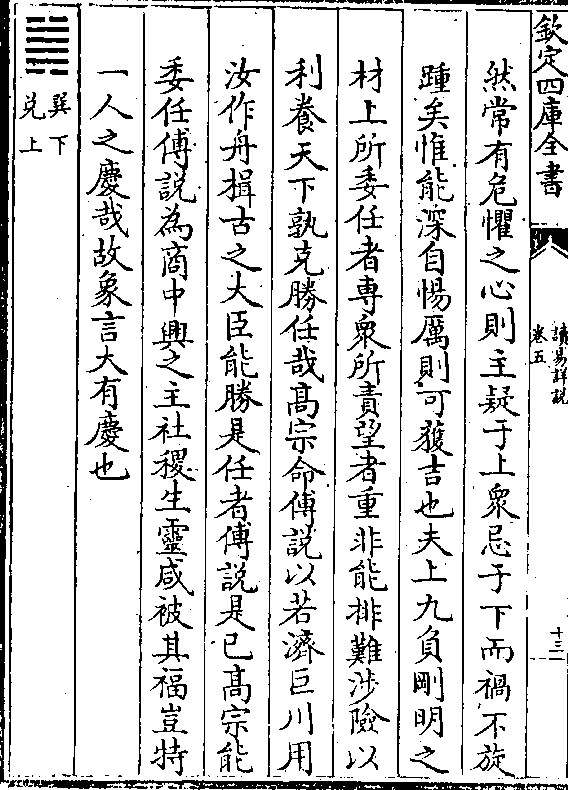 欽定四庫全書
讀易詳説
卷五
十三
然常有危懼之心則主疑于上衆忌于下而禍不旋
踵矣惟能深自惕厲則可獲吉也夫上九負剛明之
材上所委任者專衆所責望者重非能排難涉險以
利養天下孰克勝任哉髙宗命傅説以若濟巨川用
汝作舟楫古之大臣能勝是任者傅説是已髙宗能
委任傅説為商中興之主社稷生靈咸被其福豈特
一人之慶哉故象言大有慶也
巽下
兑上